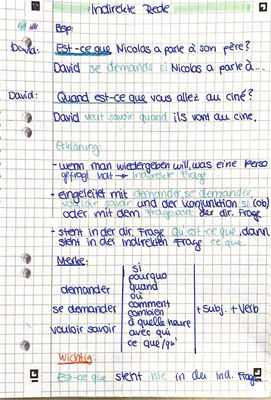 Indirekte Rede
Bsp:
David: Est-ce que Nicolas a parlé à son père?
David se demande si Nicolas a parlé à...
David: Quand est-ce que vous allez au ciné?
David veut savoir quand ils vont au ciné.
Erklärung:
- wenn man wiedergeben will, was eine Perso
gefragt hat → indirekte Frage
- eingeleitet mit demander, se demander,
vouloir savoir und der Konjunktion si (ob)
oder mit dem Fragewort der dir. Frage
- steht in der dir. Frage qu'est-ce que, dann
steht in der indirekten Frage ce que.
Merke:
si
pourquoi
demander quand
où
se demander comment + Subj. + Verb
combien
vouloir savoir à quelle heure
avec qui
ce que/qu'
Wichtig:
Est-ce que steht nie in der ind. Frage